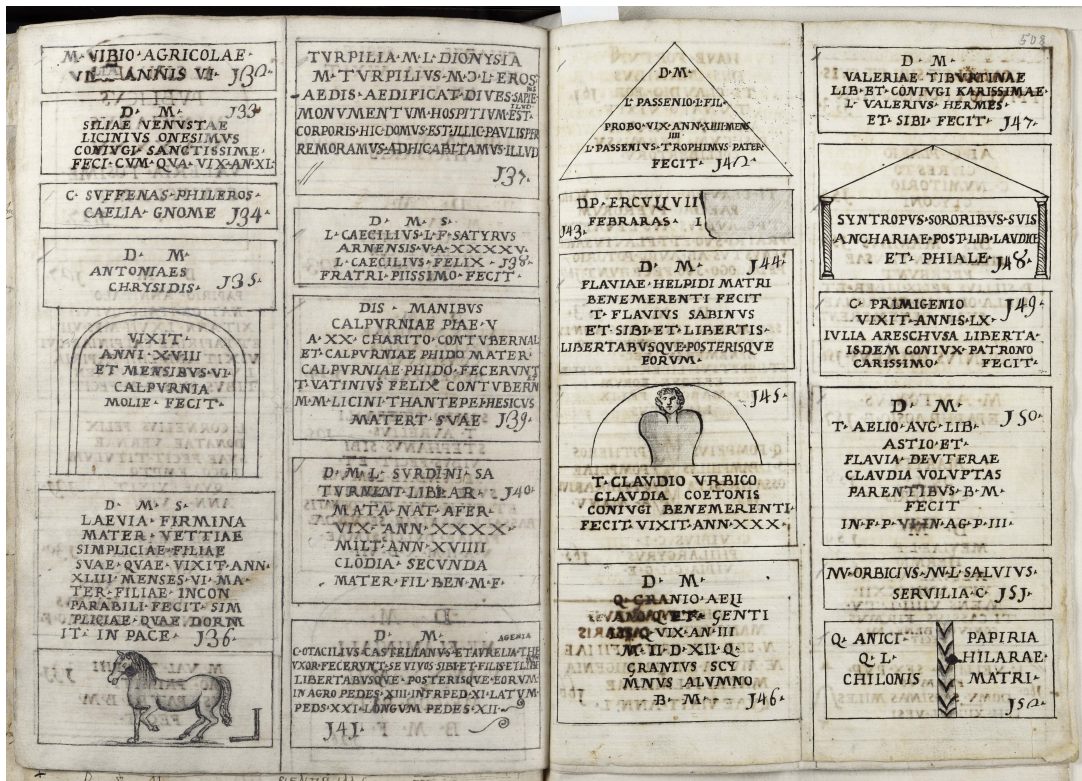 M· VIBIO · AGRICOLAE·
ANNIS VI· 132·
D· M· 133·
SILIAE VENVSTAE
LICINIVS ONESIMVS
CONIVGI· SANCTISSIME·
FECI· CVM· QVA· VIX· AN· XI·
C· SVFFENAS· PHILEROS·
CAELIA· GNOME 134·
D· M·
ANTONIAES
CHRYSIDIS· 135·
VIXIT·
ANNI· XVIII
ET· MENSIBVS· VI·
CALPVRNIA
MOLIE· FECIT·
D· M· S·
LAEVIA· FIRMINA
MATER· VETTIAE
SIMPLICIAE· FILIAE
SVAE· QVAE· VIXIT· ANN·
XLIII· MENSES· VI· MA·
TER· FILIAE· INCON
PARABILI· FECIT· SIM
PLICIAE· QVAE· DORM
IT· IN PACE· 136·
TVRPILIA· M· L· DIONYSIA
M· TVRPILIVS· M· Ɔ· L· EROS
AEDIS· AEDIFICAT· DIVES· SAPIE
NS
MONVMENTVM· HOSPITIVM· EST·
ILVD·
CORPORIS· HIC· DOMVS· EST· ILLIC· PAVLISPER
REMORAMVS· ADHIC· ABITAMVS· ILLVD
137·
D· M· S·
L· CAECILIVS· L· F· SATYRVS
ARNENSIS· V· A· XXXXV·
L· CAECILIVS· FELIX· 138·
FRATRI· PIISSIMO· FECIT·
DIS· MANIBVS
CALPVRNIAE PIAE· V
A· XX· CHARITO· CONTVBERNAL
ET· CALPVRNIAE PHIDO MATER·
CALPVRNIAE· PHIDO· FECERVNT
T· VATINIVS FELIX CONTVBERN
M· M· LICINI THANTEPE· HESICVS
MATERT· SVAE 139·
D· M· L· SVRDINI· SA
TVRNENT· LIBRAR· 140·
MATA· NAT· AFER·
VIX· ANN· XXXX·
MILT· ANN· XVIIII
CLODIA· SECVNDA
MATER· FIL· BEN· M· F·
D· M· AGENIA
C· OTACILIVS CASTELLIANVS· ET AVRELIA· THE
VXOR· FECERVNT· SE VIVOS SIBI· ET· FILIS· ET· LIB
LIBERTABVSQVE· POSTERISQVE· EORVM·
IN AGRO PEDES· XIII· INFRPED· XI· LATVM·
PEDS· XXI· LONGVM PEDES· XII·
141·
508
D· M·
L· PASSENIO· L· FIL·
PROBO· VIX· ANN· XIIII· MENS
IIII·
L· PASSENIVS· TROPHIMVS PATER·
FECIT· 142·
DP· ERCVLI VII
FEBRARAS· I
143·
D· M· 144·
FLAVIAE· HELPIDI MATRI
BENEMERENTI FECIT
T· FLAVIVS SABINVS
ET· SIBI· ET· LIBERTIS·
LIBERTABVSQVE· POSTERISQVE
EORVM·
145·
T· CLAVDIO VRBICO
CLAVDIA COETONIS
CONIVGI BENEMERENTI·
FECIT· VIXIT· ANN· XXX·
D· M·
Q· GRANIO· AELI
GENTI
VIX· AN· III
M· II· D· XII· Q·
GRANIVS SCY
MNVS ALVMNO
B· M· 146·
D· M·
VALERIAE TIBVRTINAE
LIB· ET· CONIVGI KARISSIMAE·
L· VALERIVS HERMES·
ET· SIBI FECIT· 147·
SYNTROPVS· SORORIBVS· SVIS
ANCHARIAE· POST· LIB· LAVDICE
ET· PHIALE· 148·
C· PRIMIGENIO 149·
VIXIT· ANNIS· LX·
IVLIA ARESCHVSA LIBERTA·
ISDEM CONIVX· PATRONO
CARISSIMO· FECIT·
D· M· 150·
T· AELIO· AVG· LIB·
ASTIO· ET·
FLAVIA· DEVTERAE
CLAVDIA VOLVPTAS
PARENTIBVS· B· M·
FECIT
IN· F· P· VI· IN· AG· P· III·
ORBICIVS· L· SALVIVS·
SERVILIA· C· 151·
Q· ANICI· PAPIRIA
Q· L· HILARAE·
CHILONIS MATRI·
152·